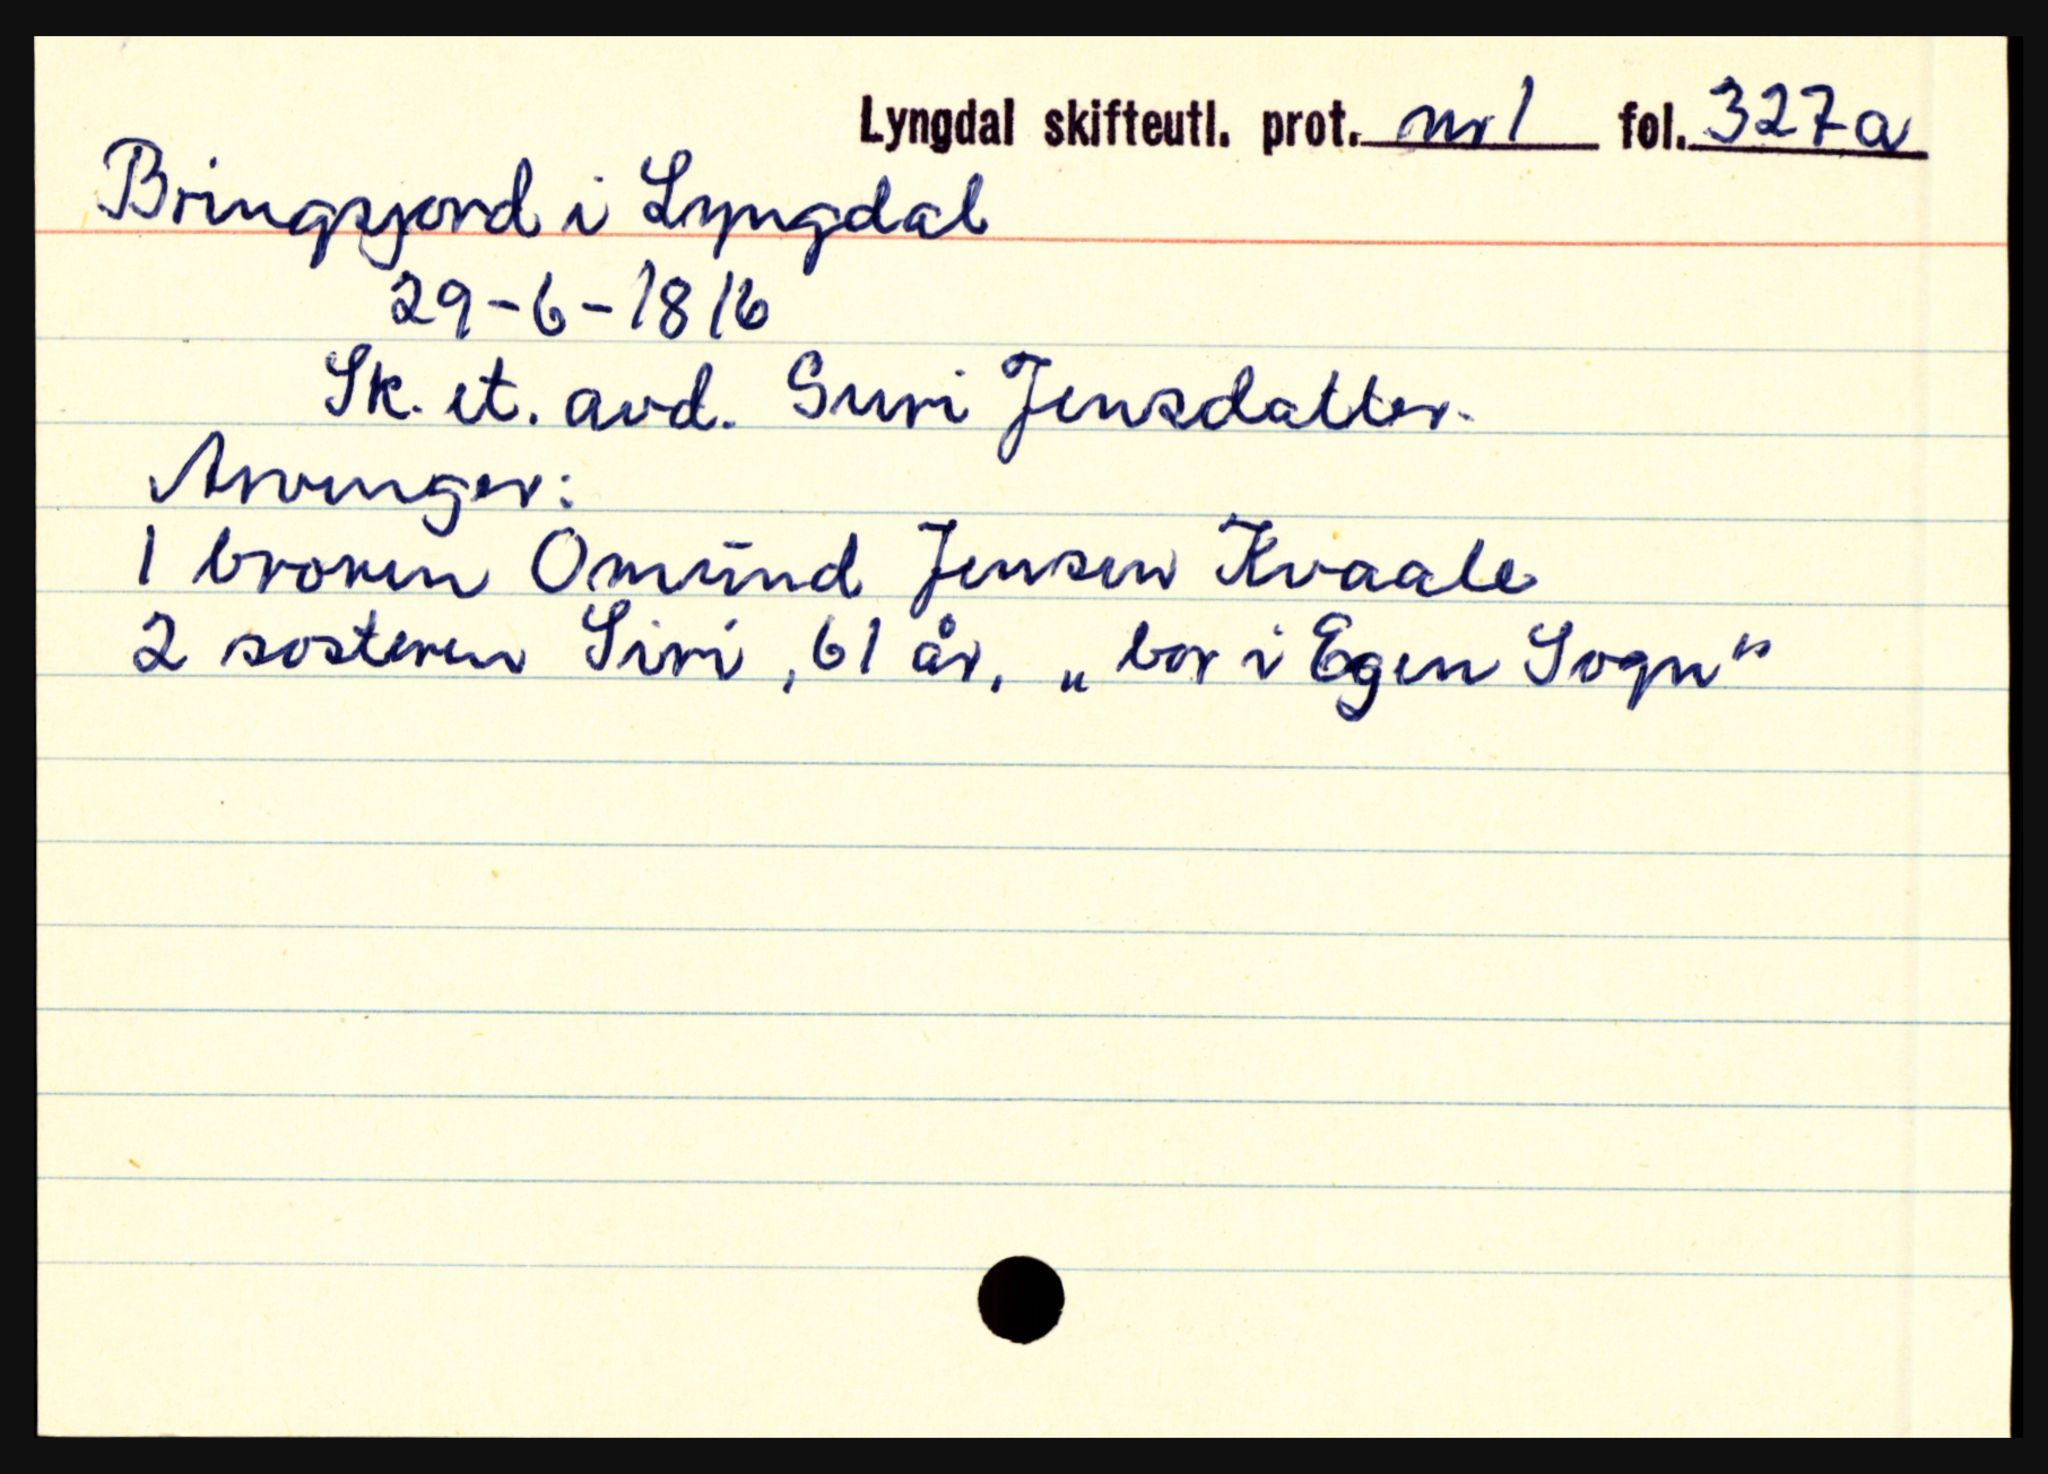 Lyngdal skifteutl. prot. nr 1 fol. 327a
Bringsjord i Lyngdal
29-6-1816
Sk. et. avd. Guri Jensdatter.
Arvinger:
1 broren Omund Jensen Kvaale
2 søsteren Siri, 61 år. „bor i Egen Sogn“